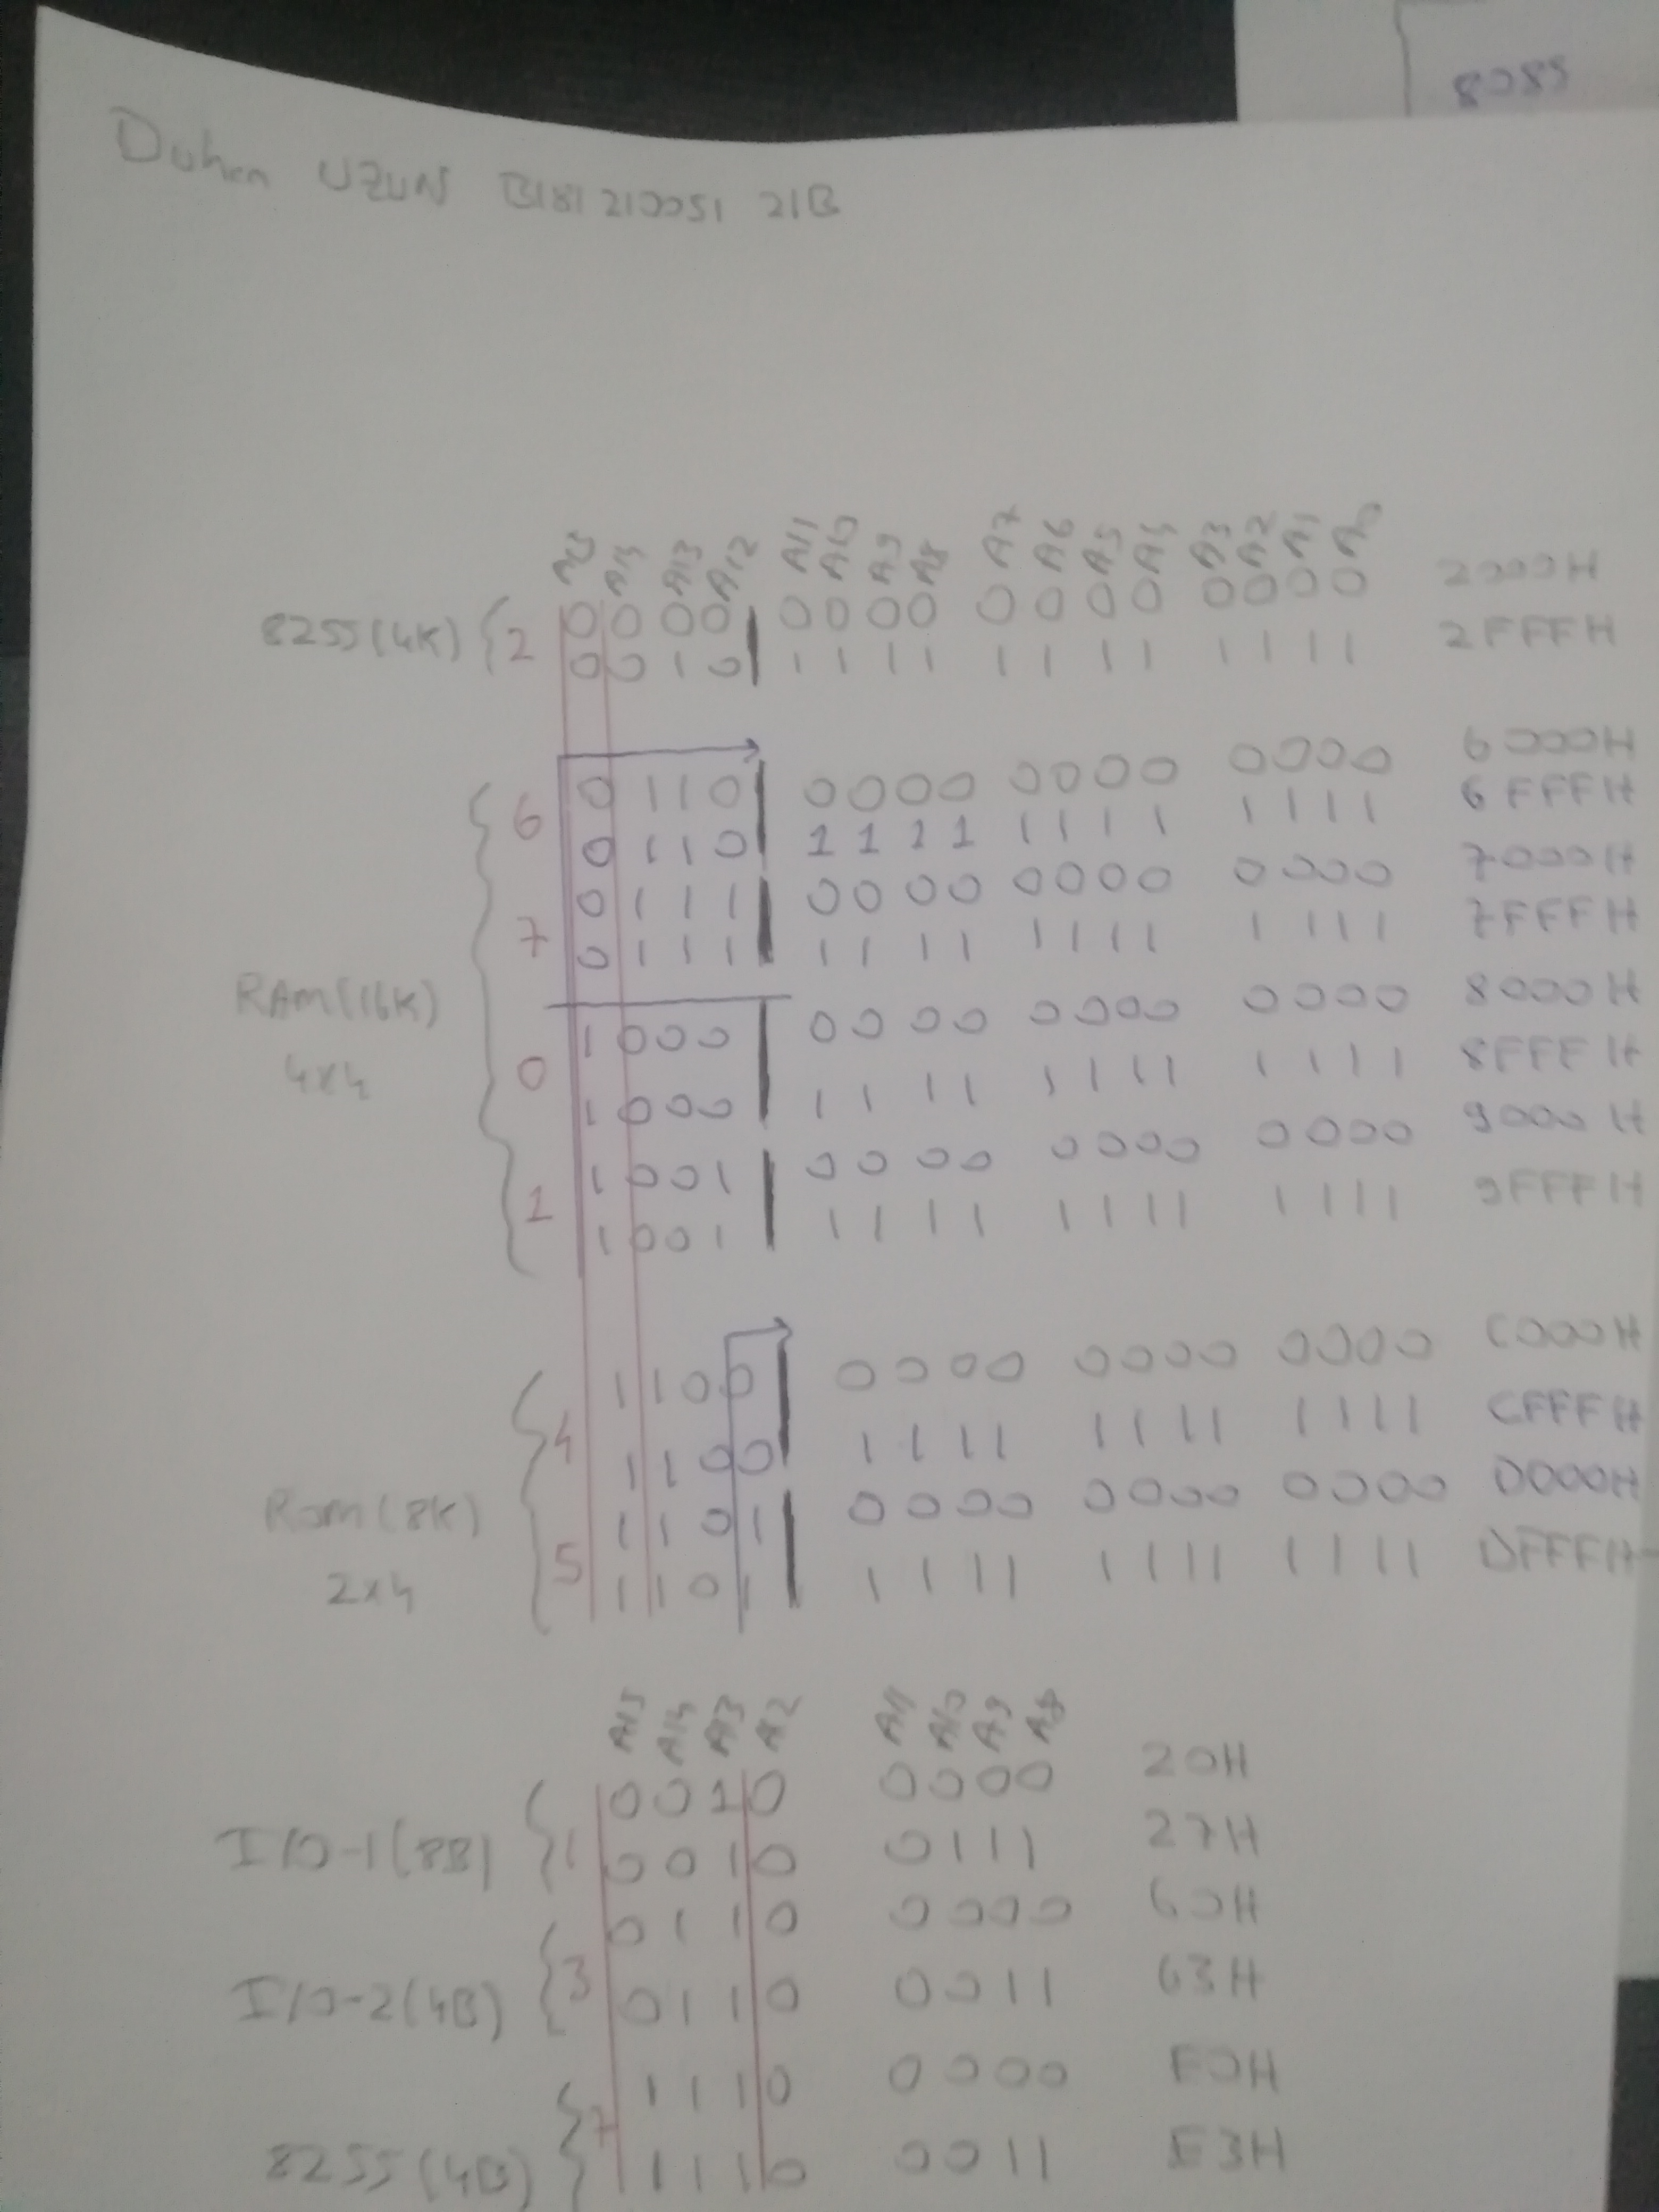 8085
Duhan UZUN B181210051 21B
A15 A14 A13 A12 A11 A10 A9 A8 A7 A6 A5 A4 A3 A2 A1 A0
8255(4K) { 2 0 0 0 0 0 0 0 0 0 0 0 0 0 0 0 0 2000H
0 0 1 0 1 1 1 1 1 1 1 1 1 1 1 1 2FFFH
6 0 1 1 0 0 0 0 0 0 0 0 0 0 0 0 0 6000H
0 1 1 0 1 1 1 1 1 1 1 1 1 1 1 1 6FFFH
7 0 1 1 1 0 0 0 0 0 0 0 0 0 0 0 0 7000H
0 1 1 1 1 1 1 1 1 1 1 1 1 1 1 1 7FFFH
RAM(16K)
4x4
0 1 0 0 0 0 0 0 0 0 0 0 0 0 0 0 0 8000H
1 0 0 0 1 1 1 1 1 1 1 1 1 1 1 1 8FFFH
1 1 0 0 1 0 0 0 0 0 0 0 0 0 0 0 0 9000H
1 0 0 1 1 1 1 1 1 1 1 1 1 1 1 1 9FFFH
4 1 1 0 0 0 0 0 0 0 0 0 0 0 0 0 0 C000H
1 1 0 0 1 1 1 1 1 1 1 1 1 1 1 1 CFFFH
Rom(8K)
2x4
5 1 1 0 1 0 0 0 0 0 0 0 0 0 0 0 0 D000H
1 1 0 1 1 1 1 1 1 1 1 1 1 1 1 1 DFFFH
A15 A14 A13 A12 A11 A10 A9 A8
I/O-1(8B) { 1 0 0 1 0 0 0 0 0 20H
0 0 1 0 0 1 1 1 27H
I/O-2(4B) { 3 0 1 1 0 0 0 0 0 60H
0 1 1 0 0 0 1 1 63H
8255(4B) { 7 1 1 1 0 0 0 0 0 E0H
1 1 1 0 0 0 1 1 E3H